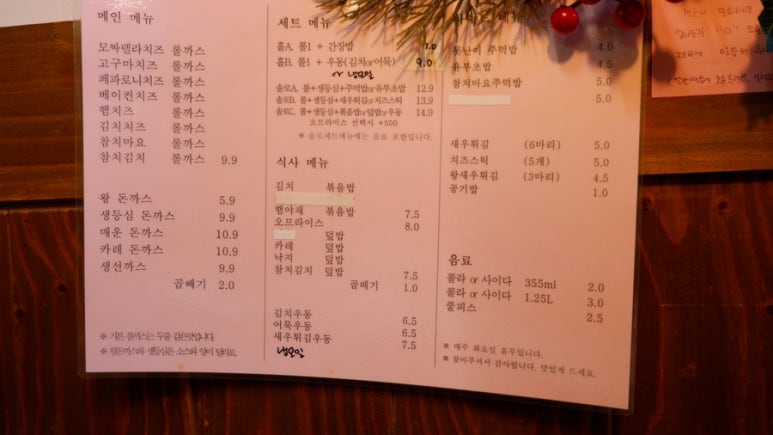 메인 메뉴
모짜렐라치즈 롤까스
고구마치즈 롤까스
페파로니치즈 롤까스
베이컨치즈 롤까스
햄치즈 롤까스
김치치즈 롤까스
참치마요 롤까스
참치김치 롤까스 9.9
왕 돈까스 5.9
생등심 돈까스 9.9
매운 돈까스 10.9
카레 돈까스 10.9
생선까스 9.9
곱빼기 2.0
세트 메뉴
홀A. 롤1 + 간장밥
홀B. 롤1 + 우동(김치or어묵) 9.0
냉모밀
솔로A. 롤+생등심+주먹밥or유부초밥 12.9
솔로B. 롤+생등심+새우튀김or치즈스틱 13.9
솔로C. 롤+생등심+볶음밥or덮밥or우동 14.9
오므라이스 선택시 +500
※ 솔로세트메뉴에는 음료 포함입니다.
식사 메뉴
김치 볶음밥
볶음밥 7.5
오므라이스 8.0
덮밥
카레 덮밥
낙지 덮밥
참치김치 덮밥 7.5
곱빼기 1.0
김치우동 6.5
어묵우동 6.5
새우튀김우동 7.5
냉모밀
메뉴
못난이 주먹밥 4.0
유부초밥 4.5
참치마요주먹밥 5.0
5.0
새우튀김 (6마리) 5.0
치즈스틱 (5개) 5.0
왕새우튀김 (3마리) 4.5
공기밥 1.0
음료
콜라 or 사이다 355ml 2.0
콜라 or 사이다 1.25L 3.0
쿨피스 2.5
※ 매주 화요일 휴무입니다.
※ 찾아주셔서 감사합니다. 맛있게 드세요.